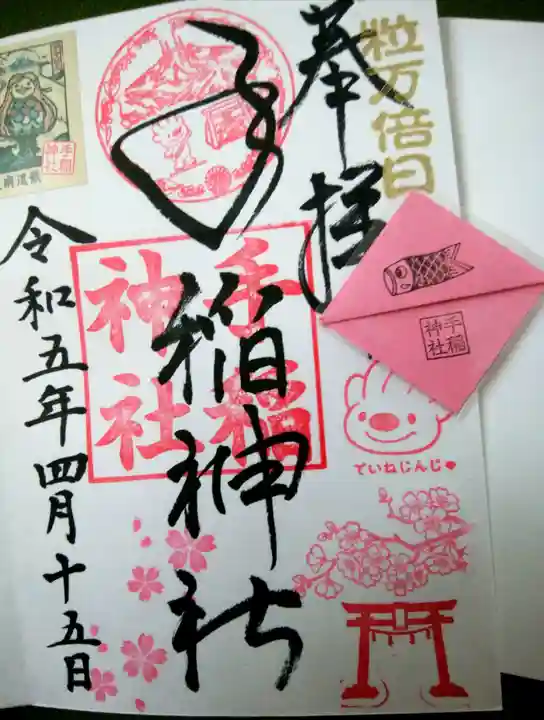 一粒万倍日
奉拝
手稲神社
手稲
神社
令和五年四月十五日
手稲
神社
手稲
神社
ていねじんじゃ